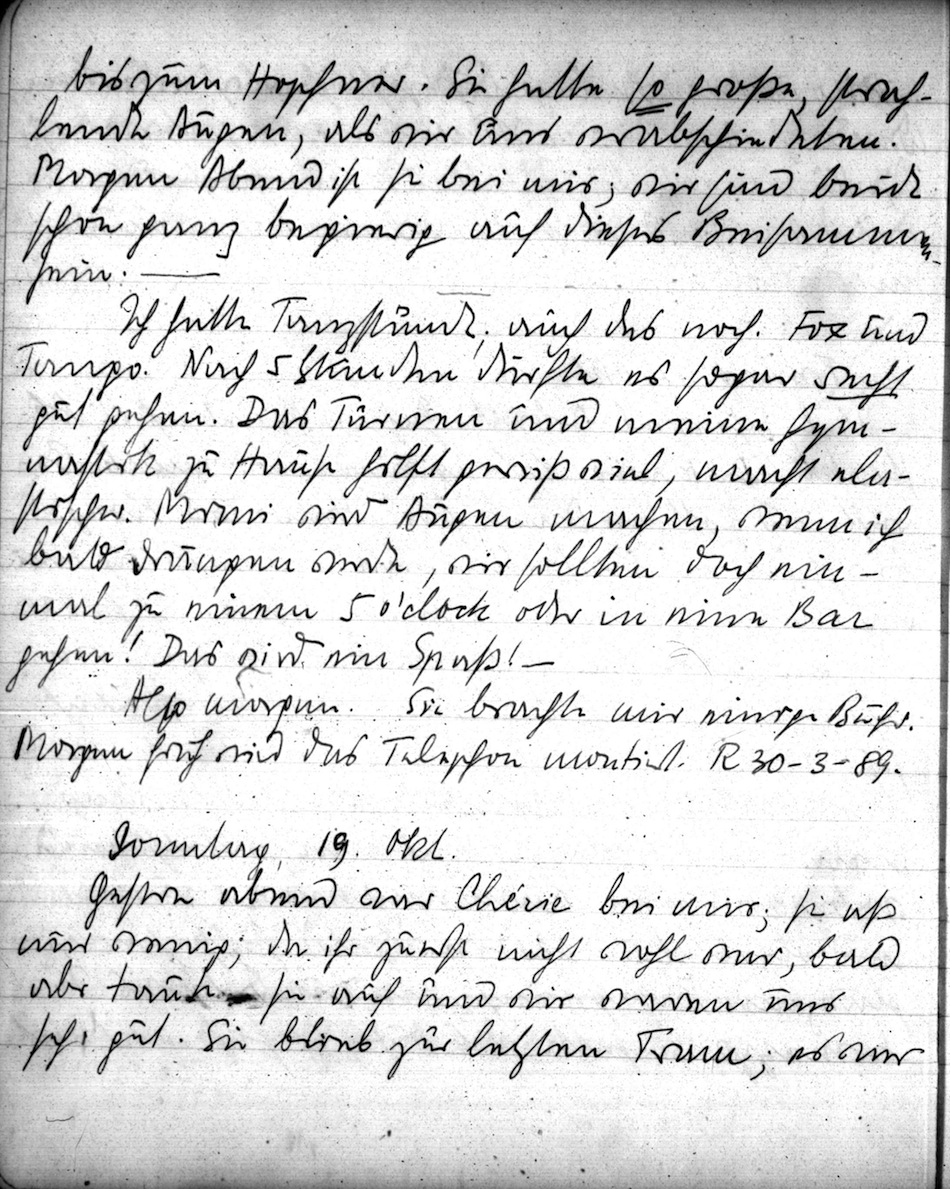 bis zum Hopfner. Sie hatte so große, strah-
lende Augen, als wir uns verabschiedeten.
Morgen Abend ist sie bei mir; wir sind beide
schon ganz begierig auf dieses Beisammen-
sein. —
Ich hatte Tanzstunde, auch das noch. Fox und
Tango. Nach 5 Stunden dürfte es sogar recht
gut gehen. Das Turnen und meine Gym-
nastik zu Hause hilft gewiß viel, macht ela-
stischer. Mimi wird Augen machen, wenn ich
bald drängen werde, wir sollten doch ein-
mal zu einem 5 o'clock oder in eine Bar
gehen! Das wird ein Spaß! —
Also morgen. Sie brachte mir einige Bücher.
Morgen früh wird das Telephon montiert. R 30-3-89.
Sonntag, 19. Okt.
Gestern abend war Chérie bei mir; sie aß
nur wenig, da ihr zuerst nicht wohl war, bald
aber taute sie auf und wir waren uns
sehr gut. Sie blieb zur letzten Tram; es war